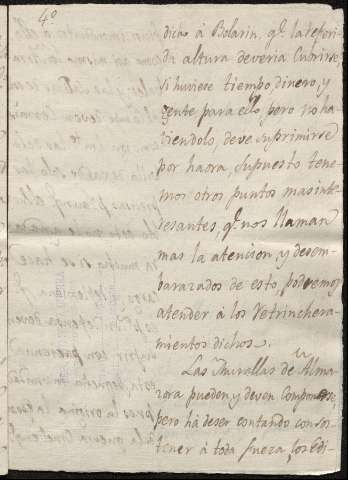 4º
dicar á Bolarin, q.e la referi-
da altura deveria Cubrirse,
si huviese tiempo, dinero, y
gente para ello, pero no ha-
viendolo, deve Suprimirse
por haora, Supuesto tene-
mos otros puntos mas inte-
resantes, q.e nos llaman
mas la atencion, y desem-
barazados de esto, podremos
atender á los Retrinchera-
mientos dichos.
Las Murallas de Alma-
zora pueden, y deven Componerse;
pero há de ser contando con sos-
tener á toda fuerza, los Edi-